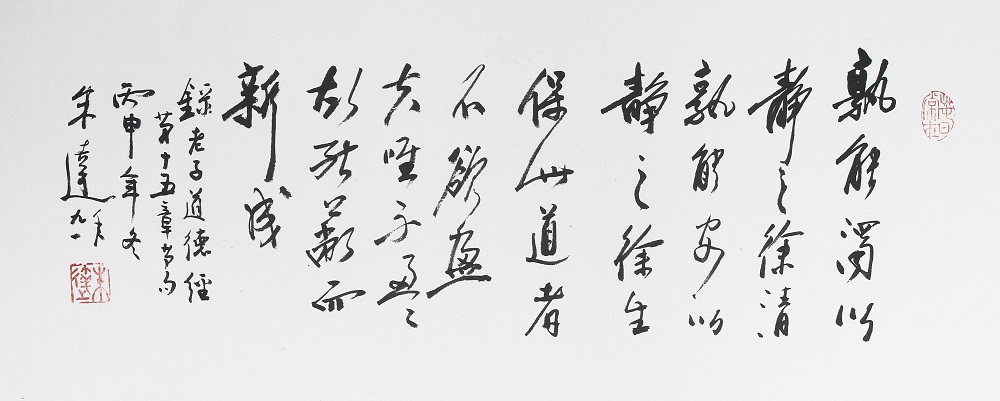 孰能濁以
靜之徐清
孰能安以
靜之徐生
保此道者
不欲盈
夫唯不盈
故能蔽而
新成
錄老子道德經
第十五章句
丙申年冬
朱達年九一
朱達